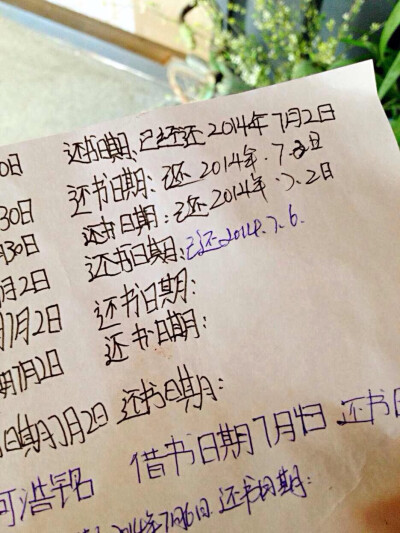 0日 还书日期:已经还 2014年7月2日
30日 还书日期:已还 2014年.7.2日
月30日 还书日期:已还 2014年.7.2日
月2日 还书日期:已还2014.7.6.
月2日 还书日期:
期7月2日 还书日期:
日期7月2日 还书日期:
浩铭 借书日期7月4日 还书日
2014年7月6日 还书日期: